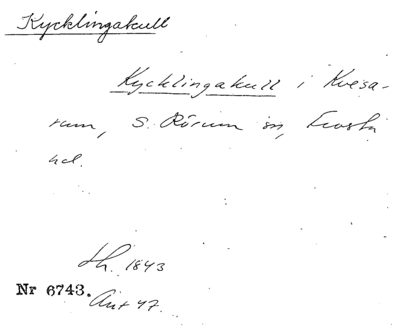 Kycklingakull
Kycklingakull i Kvesa-
rum, S. Rörum sn, Frosta
hd.
Lh. 1843
Nr 6743.
Ant 47.